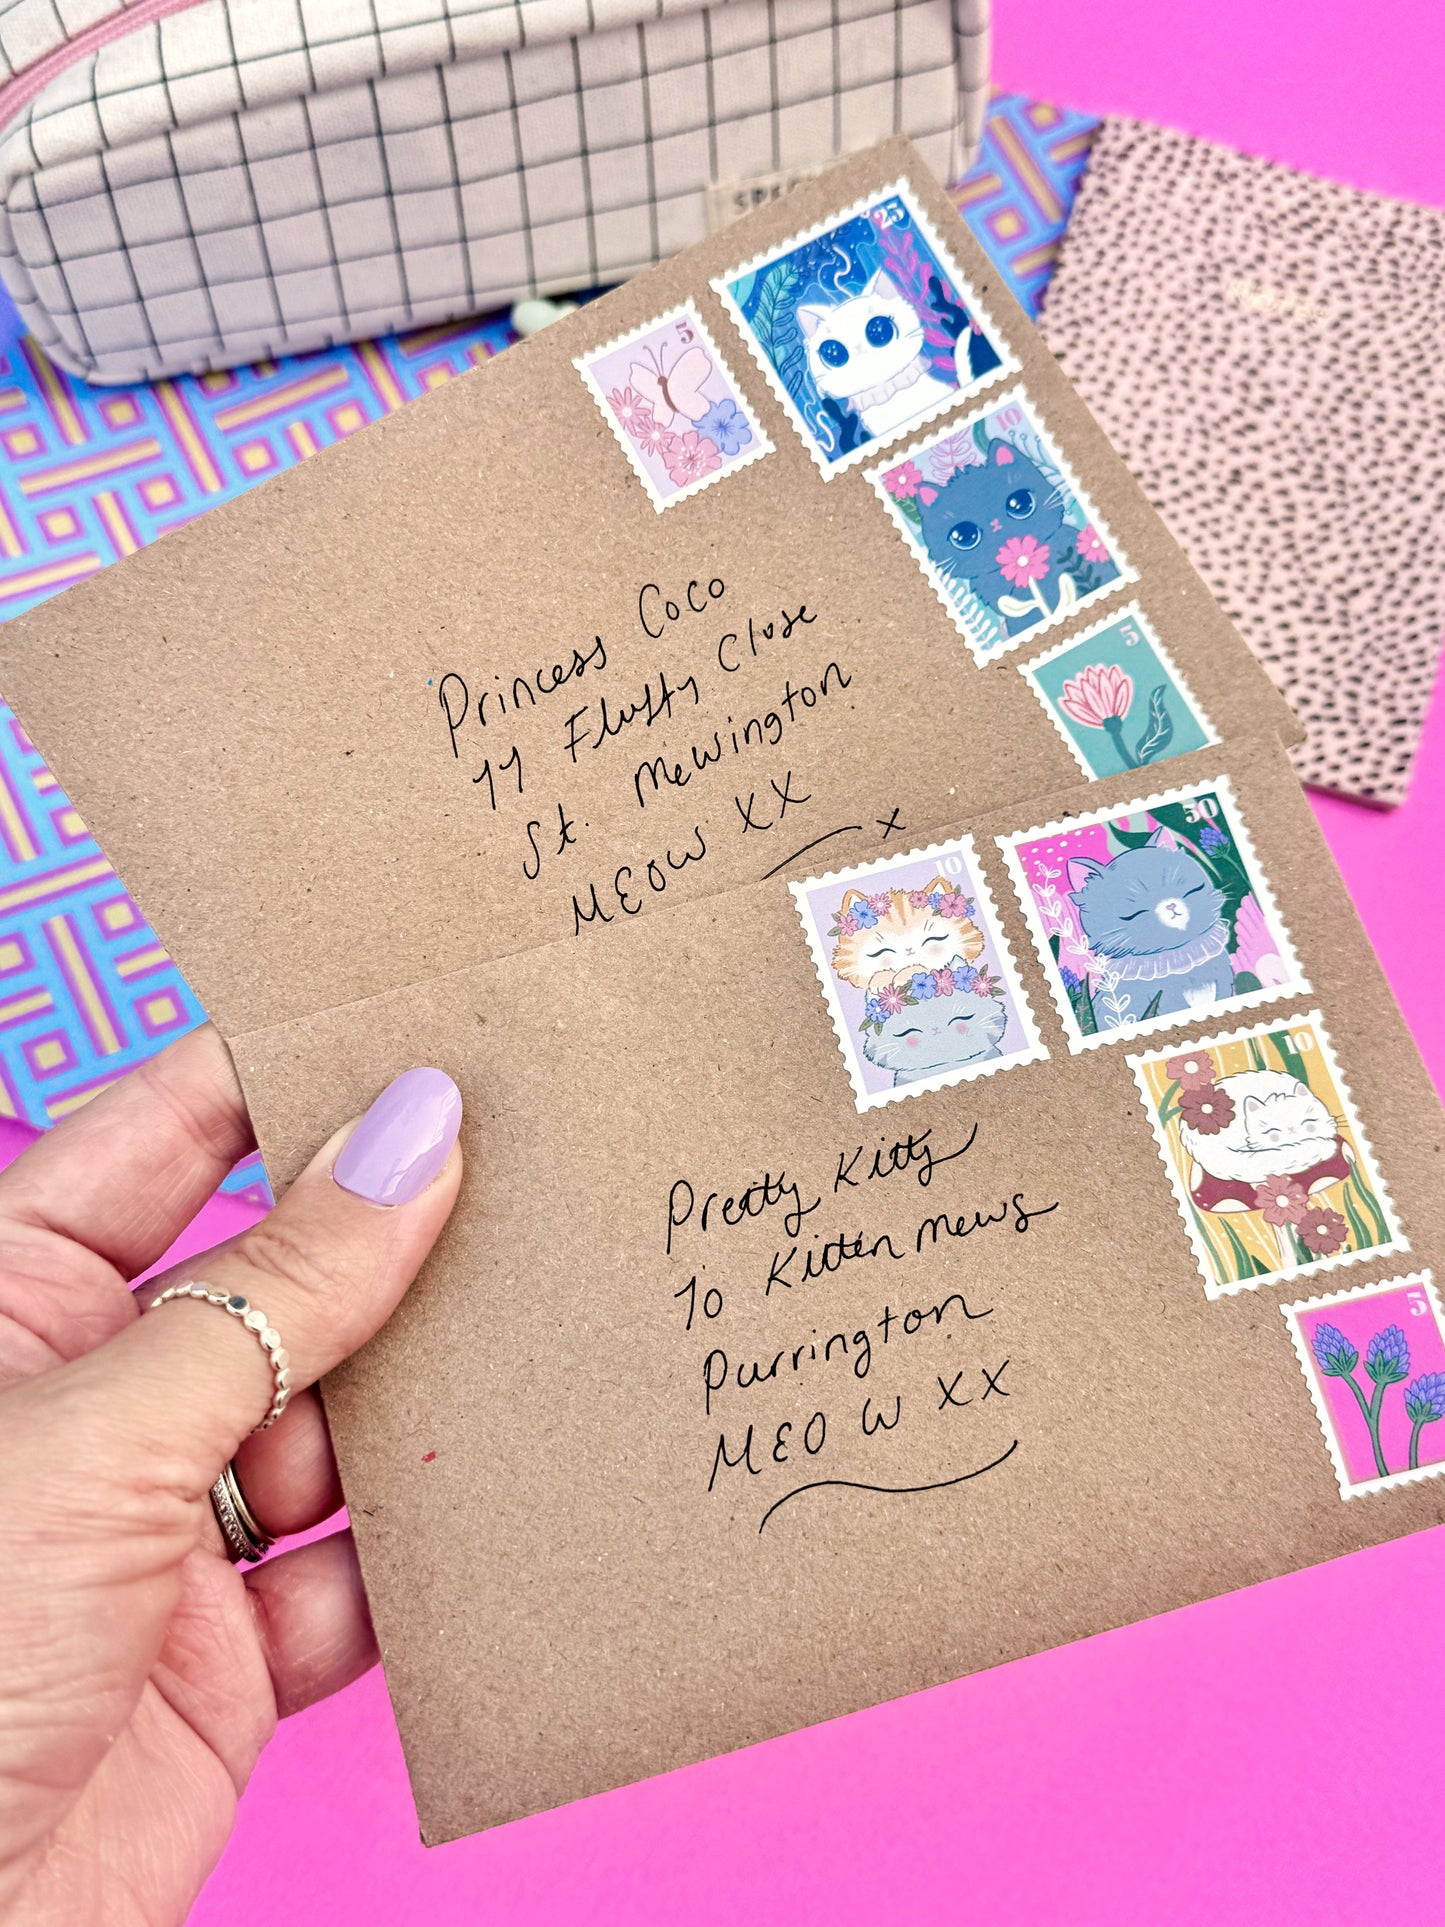 25
5
10
5
Princess Coco
77 Fluffy Close
St. Mewington
MEOW XX
x
10
50
10
5
Pretty Kitty
10 Kitten Mews
Purrington
MEOW XX